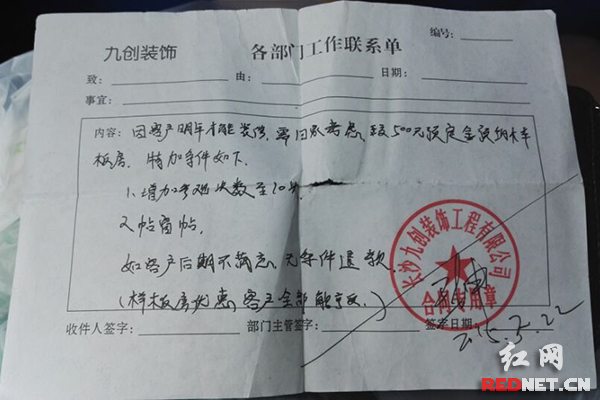 九创装饰 各部门工作联系单 编号:
致: 由: 日期:
事宜:
内容: 因客户明年才能装修,需回家考虑,交500元预定金预纳样
板房。特加条件如下
1、增加 次数至10
2、
如客户后期不满意,无条件退款
(样板房优惠客户全部能享受。)
收件人签字: 部门主管签字: 签定日期:
2015.3.22
长沙九创装饰工程有限公司
合同专用章
红网
REDNET.CN